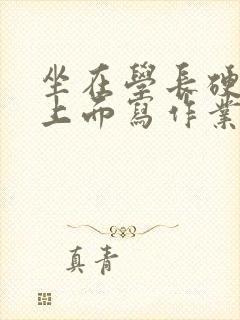 坐在學長硬
上而寫作業
真青